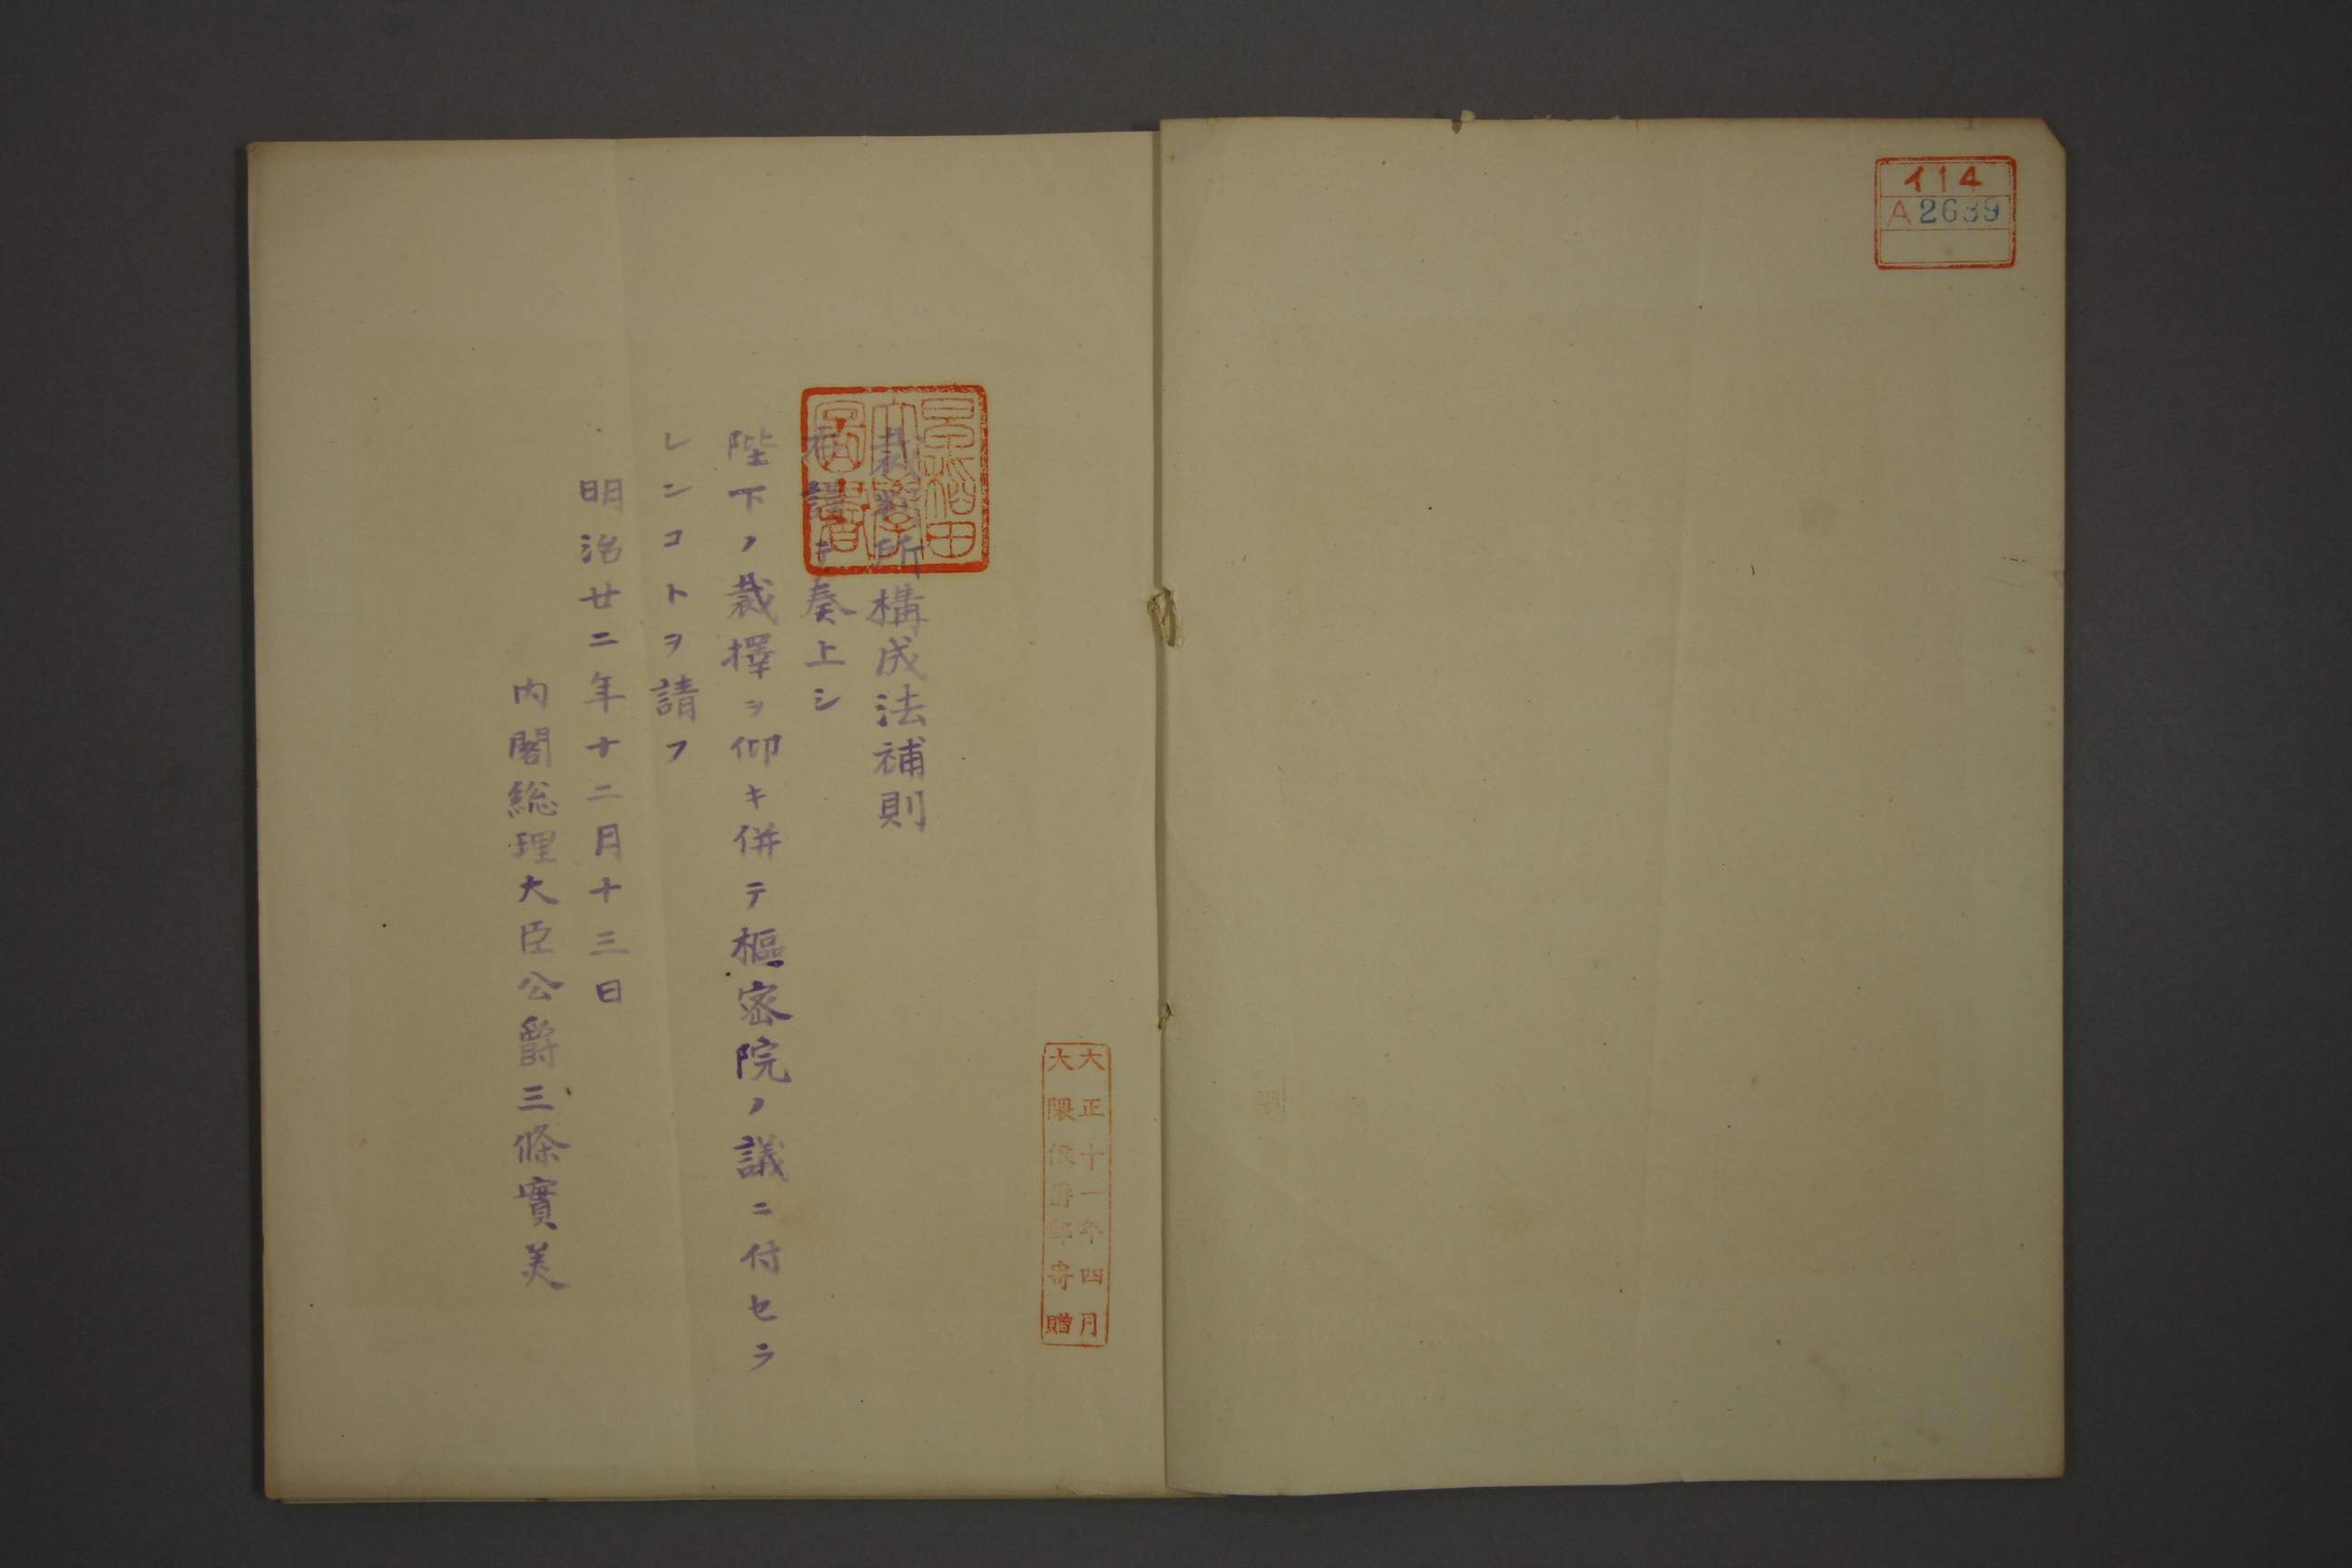 イ14
A2639
大正十一年四月
大隈侯爵邸寄贈
早稲田
大學
圖書
裁判所構成法補則
右謹テ奏上シ
陛下ノ裁擇ヲ仰キ併テ樞密院ノ議ニ付セラ
レンコトヲ請フ
明治廿二年十二月十三日
内閣総理大臣公爵三條實美